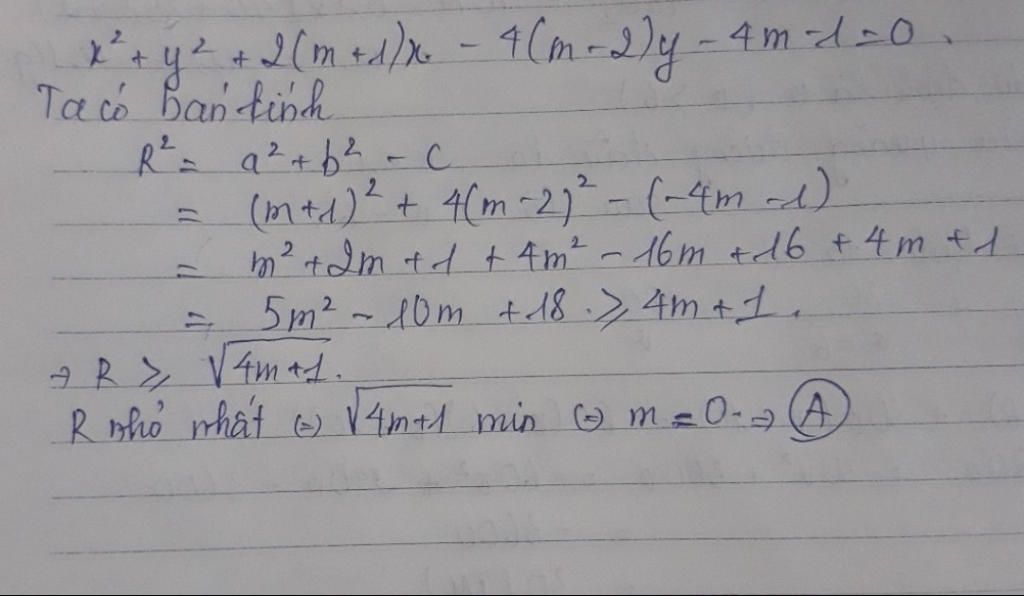 x² + y² + 2(m+1)x - 4(m-2)y - 4m - 1 = 0.
Ta có bán kính
R² = a² + b² - c
= (m+1)² + 4(m-2)² - (-4m-1)
= m² + 2m + 1 + 4m² - 16m + 16 + 4m + 1
= 5m² - 10m + 18 ⩾ 4m + 1.
→ R ⩾ √(4m+1).
R nhỏ nhất (=) √(4m+1) min (=) m = 0 ⇒ A